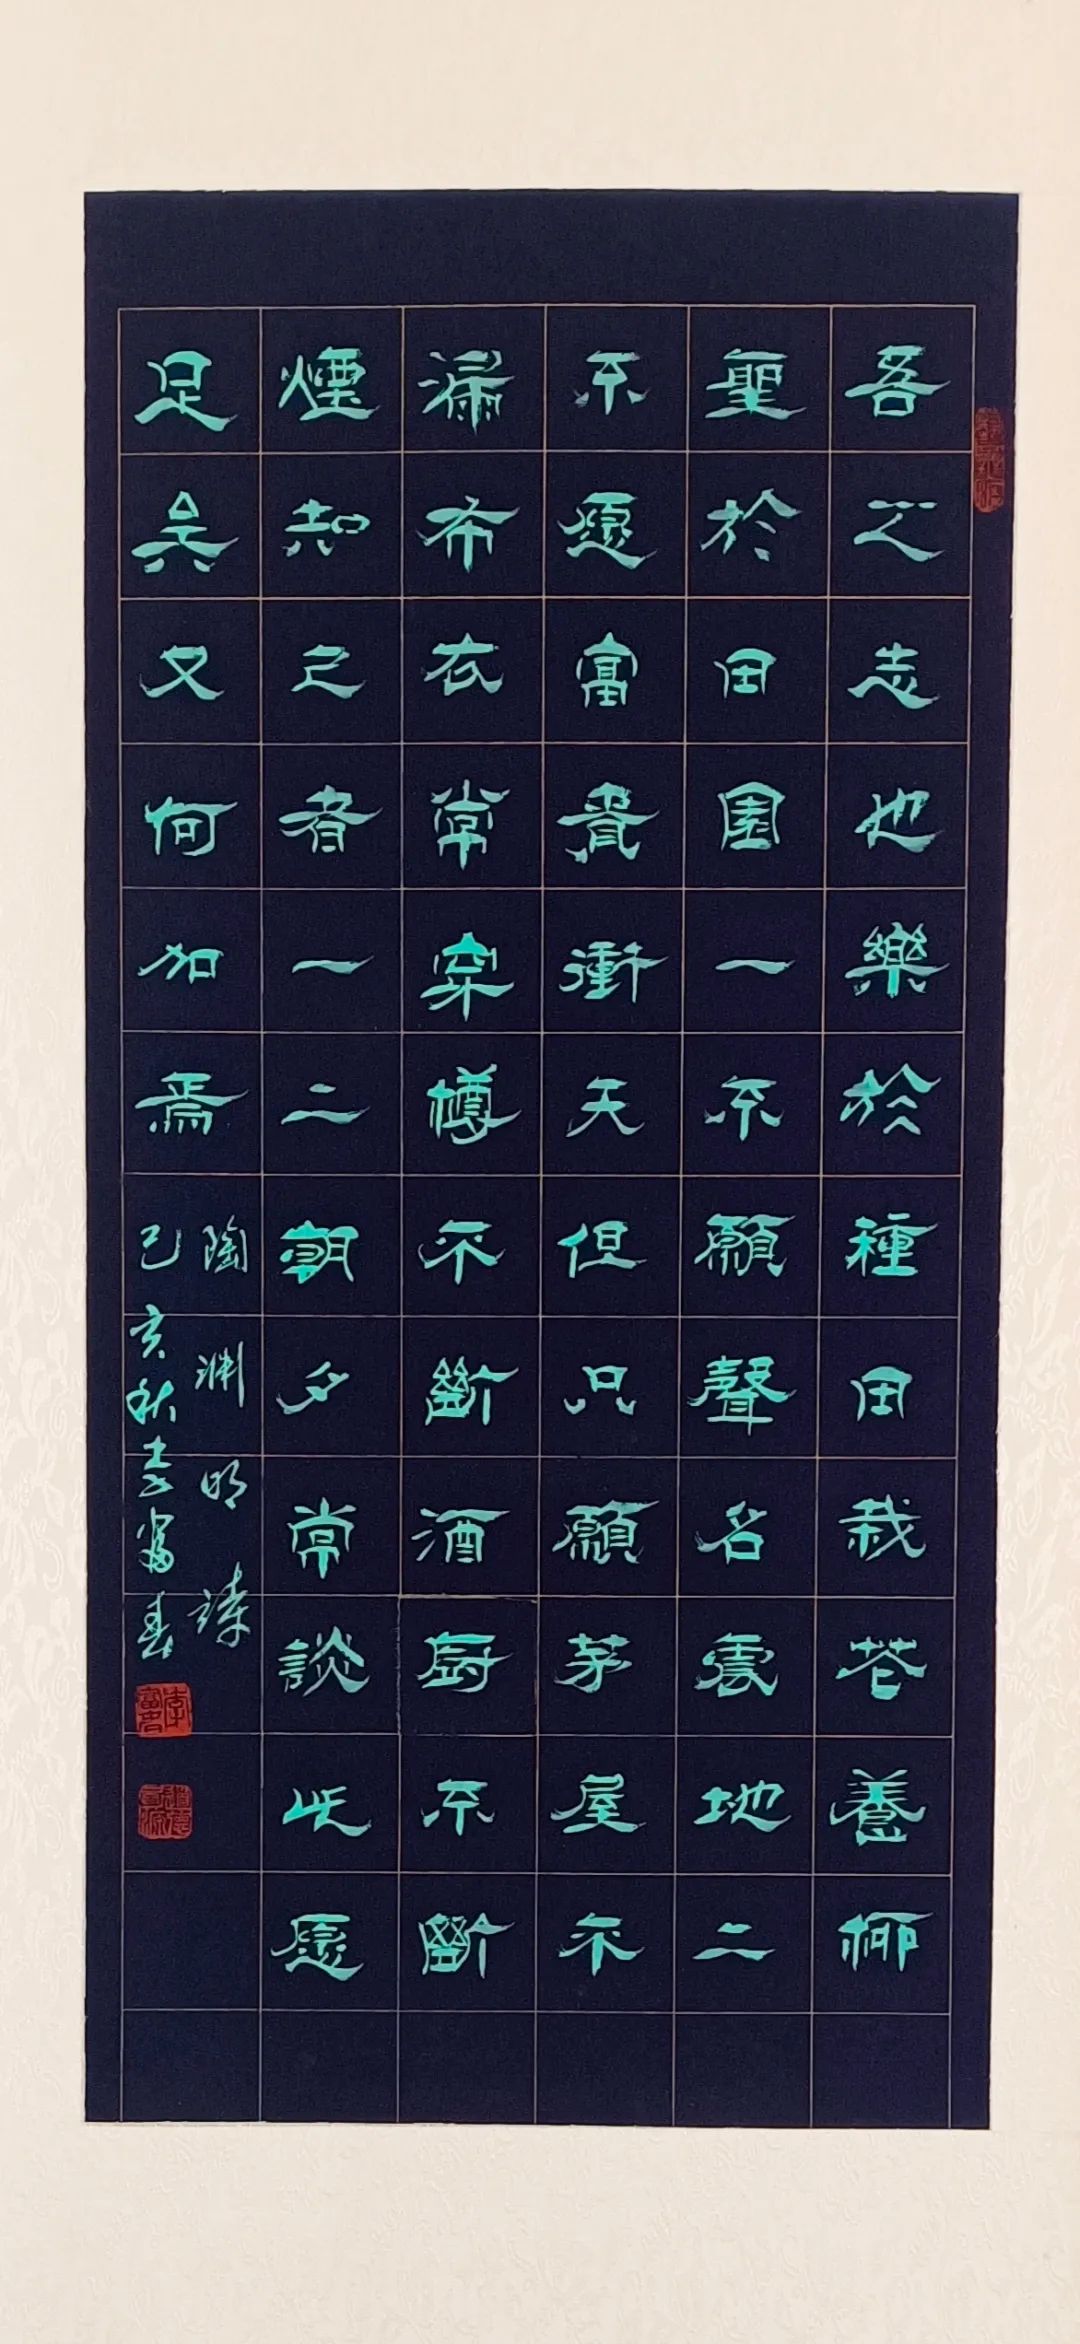 吾之志也樂於種田栽花養柳
聖於田園一不願聲名震地二
不愿富貴衝天但只願茅屋不
漏布衣常穿樽不斷酒厨不斷
煙知己者一二朝夕常談此愿
足矣又何加焉
陶渊明詩
己亥秋李富春